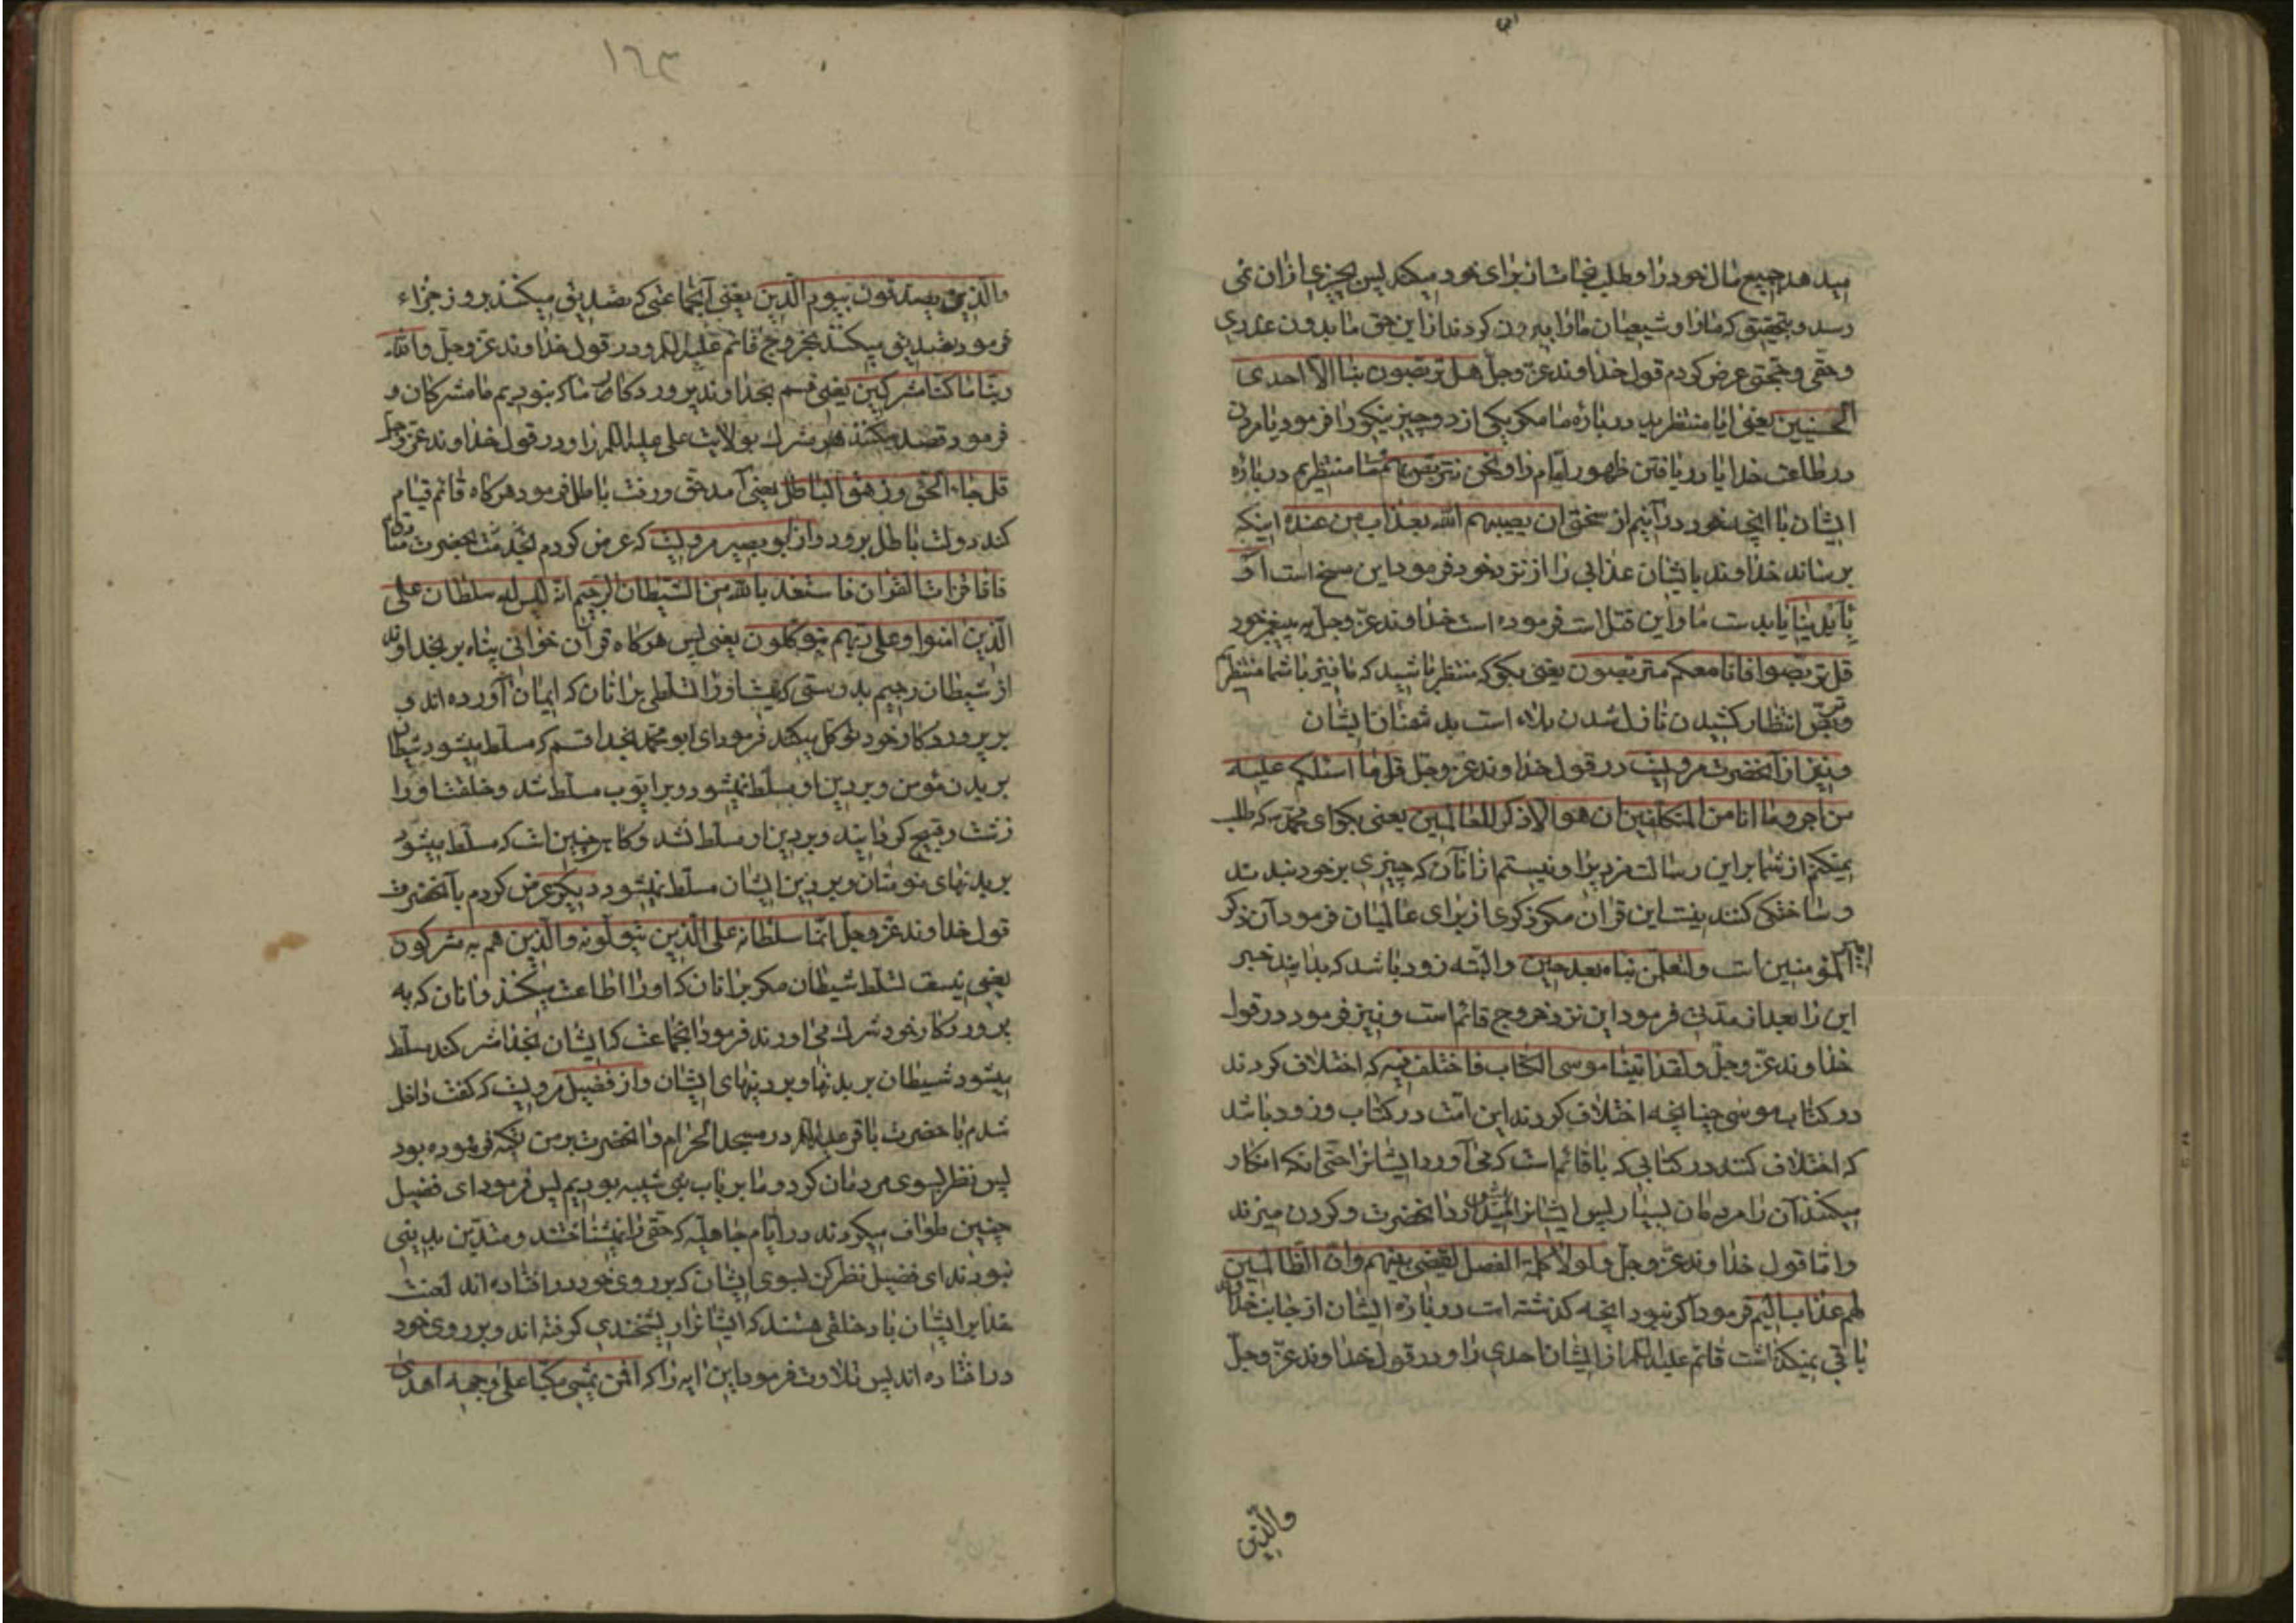 میدهد جمیع مال خود را و طلب نجاتشان برای خود میکند پس بچیزی ازان نمی
رسد و بتحقیق که ما را و شیعیان ما را بیرون کردند از این حق ما بدون عذری
و حقی و حجتی عرض کردم قول خداوند عز و جل هل تربصون بنا الا احدی
الحسنیین یعنی ایا منتظرید در باره ما مکر یکی از دو چیز نیکو را فرمود یا مردن
در طاعت خدا یا دریافتن ظهور امام را و نحن نتربص بکم و ما منتظریم در باره
ایشان با انچه خود در آنیم از سختی ان یصیبهم الله بعذاب من عنده اینکه
برساند خداوند بایشان عذابی را از نزد خود فرمود این مسخ است او
بایدینا یا بدست ما و این قتل است فرموده است خداوند عز و جل به پیغمبر خود
قل تربصوا فانا معکم متربصون یعنی بکو که منتظر باشید که ما نیز با شما منتظریم
و تربص انتظار کشیدن نازل شدن بلاء است بدشمنان ایشان
و نیز از آنحضرت مرویست در قول خداوند عز و جل قل ما اسئلکم علیه
من اجر و ما انا من المتکلفین ان هو الا ذکر للعالمین یعنی بکو ای محمد که طلب
نمیکنم از شما بر این رسالت مزدیرا و نیستم از انان که چیزی بر خود بندند
و ساختکی کنند نیست این قران مکر ذکری از برای عالمیان فرمود آن ذکر
امیر المؤمنین است و لتعلمن نباه بعد حین و البته زود باشد که بدانید خبر
این را بعد از مدتی فرمود این نزد خروج قائم است و نیز فرمود در قول
خداوند عز و جل و لقد اتینا موسی الکتاب فاختلف فیه که اختلاف کردند
در کتاب موسی چنانچه اختلاف کردند این امت در کتاب و زود باشد
که اختلاف کنند در کتابی که با قائم است که می آورد ایشانرا حتی انکه انکار
میکنند آن را مردمان بسیار پس ایشانرا پیش میدارد انحضرت و کردن میزند
و اما قول خداوند عز و جل و لولا کلمة الفصل لقضی بینهم و ان الظالمین
لهم عذاب الیم فرمود اکر نبود انچه کذشته است در باره ایشان از جانب خداوند
باقی نمیکذاشت قائم علیه السلام از ایشان احدی را و در قول خداوند عز و جل
والذین
١٦٣
والذین یصدقون بیوم الدین یعنی آنجماعتی که تصدیق میکنند بروز جزاء
فرمود تصدیق میکنند بخروج قائم علیه السلام و در قول خداوند عز و جل والله
ربنا ما کنا مشرکین یعنی قسم بخداوند پروردکار ما که نبودیم ما مشرکان و
فرمود قصد میکنند شرک بولایت علی علیه السلام را و در قول خداوند عز و جل
قل جاء الحق و زهق الباطل یعنی آمد حق و رفت باطل فرمود هر کاه قائم قیام
کند دولت باطل برود و از ابو بصیر مرویست که عرض کردم بخدمت انحضرت
فاذا قرات القران فاستعذ بالله من الشیطان الرجیم انه لیس له سلطان علی
الذین امنوا و علی ربهم یتوکلون یعنی پس هر کاه قرآن خوانی پناه بر بخداوند
از شیطان رجیم بدرستی که نیست او را تسلطی بر انان که ایمان آورده اند و
بر پروردکار خود توکل میکنند فرمود ای ابو محمد بخدا قسم که مسلط میشود شیطان
بر بدن مؤمن و بر دین او مسلط نمیشود و بر ایوب مسلط شد و خلقت او را
زشت و قبیح کردانید و بر دین او مسلط نشد و کاه چنین است که مسلط میشود
بر بدنهای مؤمنان و بر دین ایشان مسلط نمیشود دیکر عرض کردم بآنحضرت
قول خداوند عز و جل انما سلطانه علی الذین یتولونه والذین هم به مشرکون
یعنی نیست تسلط شیطان مکر بر انان که او را اطاعت میکنند و انان که به
پروردکار خود شرک می اورند فرمود انجماعت که ایشان بخدا شرک کنند مسلط
میشود شیطان بر بدنها و بر دینهای ایشان و از فضیل مرویست که کفت داخل
شدم با حضرت باقر علیه السلام در مسجد الحرام و انحضرت بر من تکیه فرموده بود
پس نظر بسوی مردمان کرد و ما بر باب بنی شیبه بودیم پس فرمود ای فضیل
چنین طواف میکردند در ایام جاهلیه که حقی را نمیشناختند و متدین بدینی
نبودند ای فضیل نظر کن بسوی ایشان که بر روی خود در افتاده اند لعنت
خدا بر ایشان باد خلقی هستند که ایشانرا ریشخندی کرفته اند و بر روی خود
در افتاده اند پس تلاوت فرمود این ایه را که افمن یمشی مکبا علی وجهه اهدی